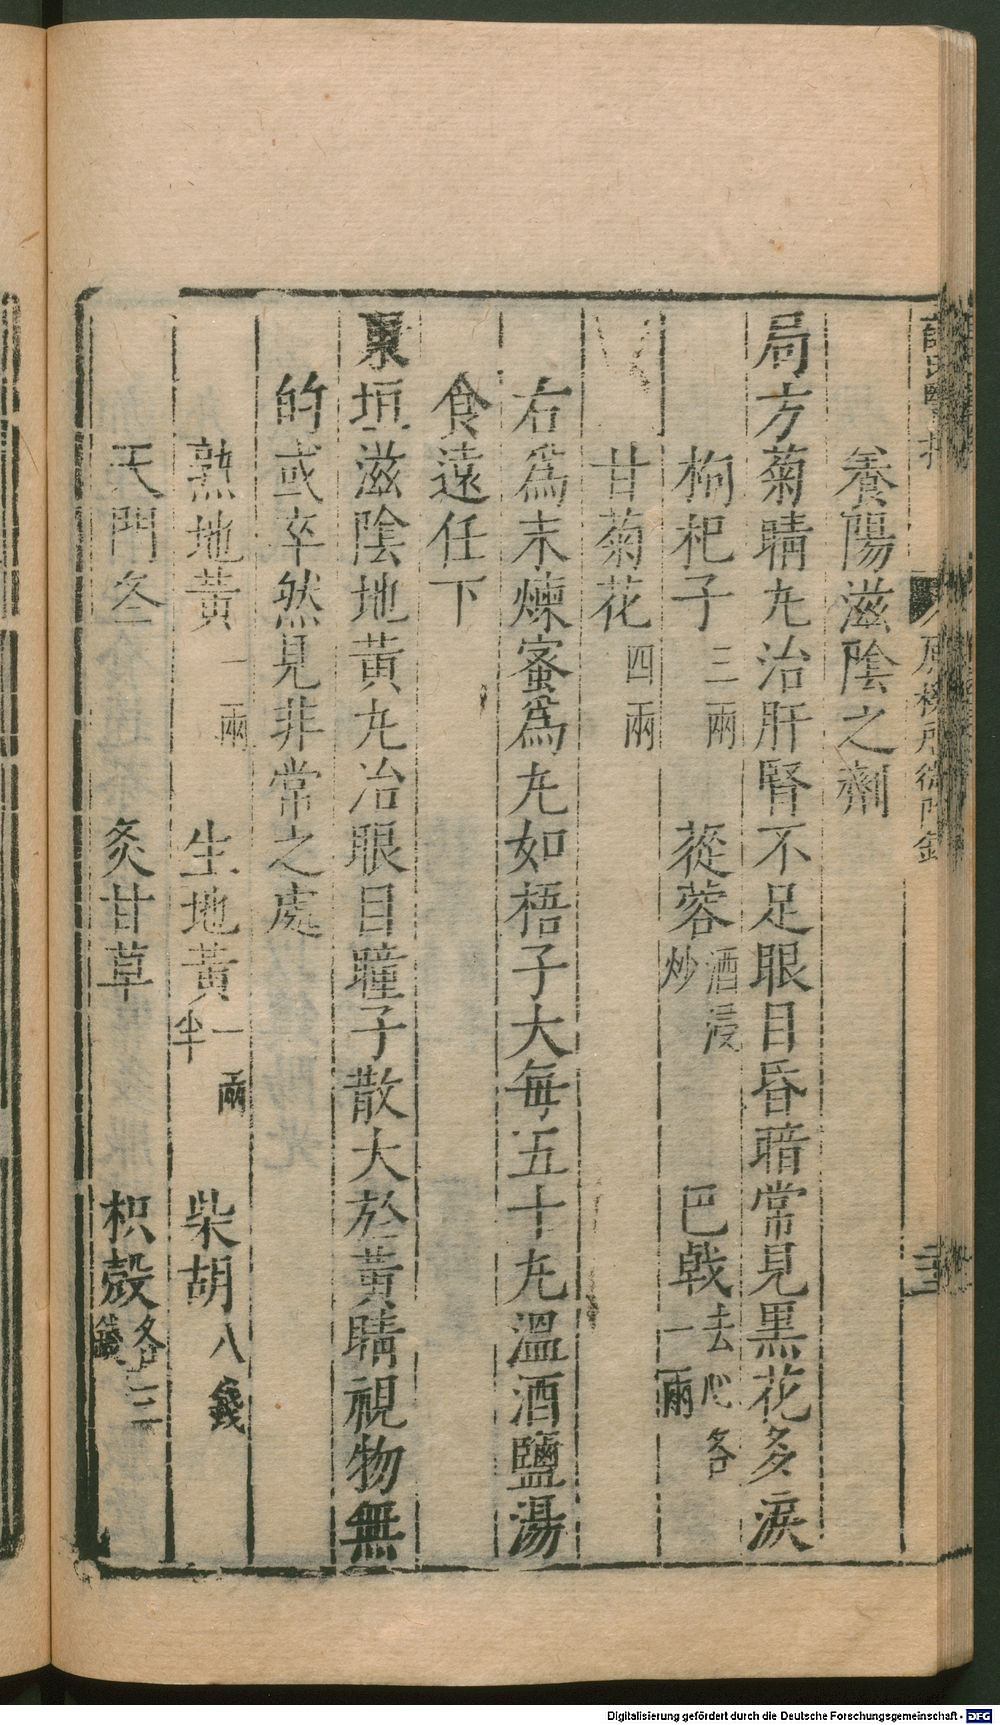 養陽滋陰之劑
局方菊睛丸治肝腎不足眼目昏暗常見黑花多淚
枸杞子三兩 蓯蓉酒浸炒 巴戟去心各一兩
甘菊花四兩
右為末煉蜜為丸如梧子大每五十丸溫酒鹽湯
食遠任下
東垣滋陰地黃丸治眼目瞳子散大於黃睛視物無
的或卒然見非常之處
熟地黃一兩 生地黃一兩半 柴胡八錢
天門冬 炙甘草 枳殼各三錢
Digitalisierung gefördert durch die Deutsche Forschungsgemeinschaft - DFG